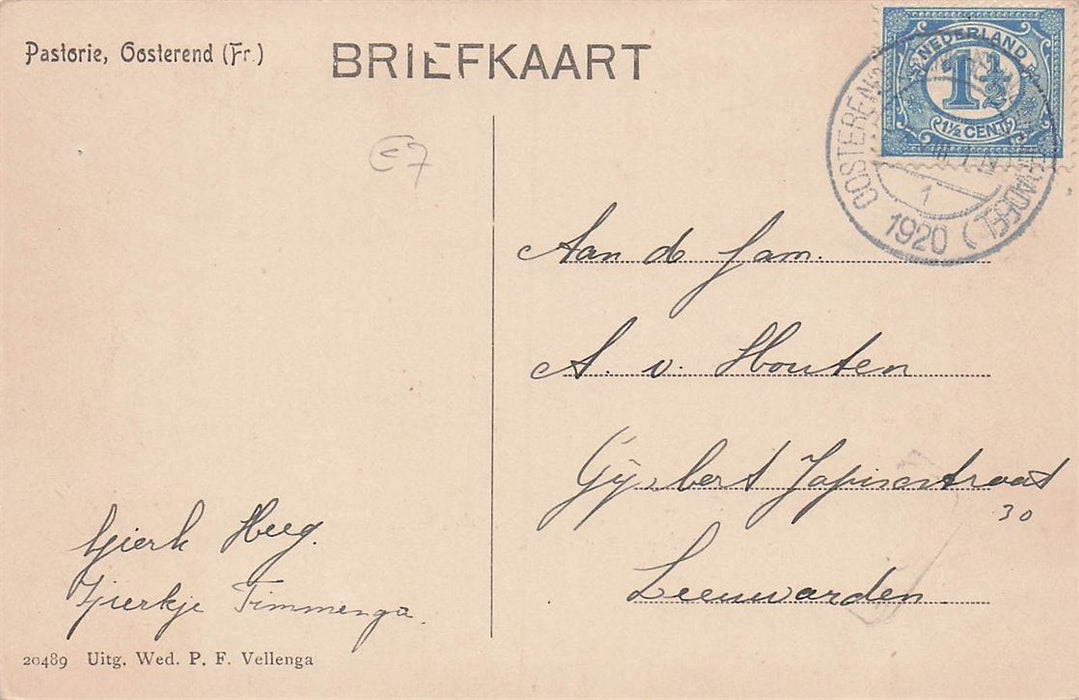 Pastorie, Oosterend (Fr.)
BRIEFKAART
NEDERLAND
1½
1½ CENT
OOSTEREND
1
1920
€7
Aan de fam.
A. v. Houten
Gijsbert Japicxstraat
30
Leeuwarden
Tjierk Heeg.
Tjierkje Timmenga.
20489 Uitg. Wed. P. F. Vellenga